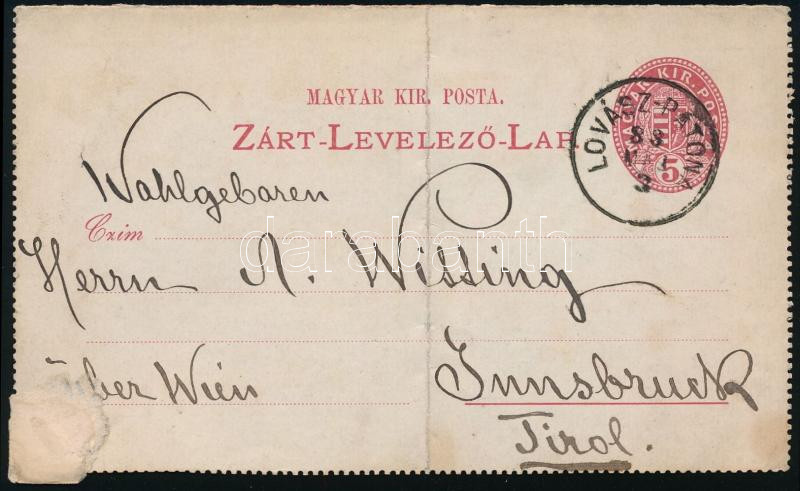 MAGYAR KIR. POSTA.
ZÁRT-LEVELEZŐ-LAP
MAGY. KIR. POSTA
5
LOVÁSZ-PATONA
88
MÁJ
3
Wohlgeboren
Czim
Herrn A. Wissing
über Wien
Innsbruck
Tirol.
darabanth